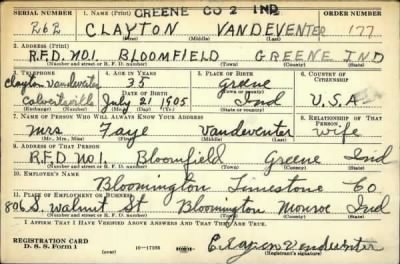 GREENE CO 2 IND
SERIAL NUMBER 1. NAME (Print) ORDER NUMBER
CLAYTON VANDEVENTER 177
(First) (Middle) (Last)
2. ADDRESS (Print)
R.F.D. NO1 BLOOMFIELD GREENE IND
(Number and street or R. F. D. number) (Town) (County) (State)
3. TELEPHONE 4. AGE IN YEARS 5. PLACE OF BIRTH 6. COUNTRY OF CITIZENSHIP
Clayton Vandeventer 35 Greene
DATE OF BIRTH (Town or county)
July 21 1905 Ind U.S.A
(Exchange) (Number) (Mo.) (Day) (Yr.) (State or country)
7. NAME OF PERSON WHO WILL ALWAYS KNOW YOUR ADDRESS 8. RELATIONSHIP OF THAT PERSON
Mrs Faye Vandeventer Wife
(Mr., Mrs., Miss) (First) (Middle) (Last)
9. ADDRESS OF THAT PERSON
R.F.D No 1 Bloomfield Greene Ind
(Number and street or R. F. D. number) (Town) (County) (State)
10. EMPLOYER'S NAME
Bloomington Limestone Co
11. PLACE OF EMPLOYMENT OR BUSINESS
806 S. Walnut St Bloomington Monroe Ind
(Number and street or R. F. D. number) (Town) (County) (State)
I AFFIRM THAT I HAVE VERIFIED ABOVE ANSWERS AND THAT THEY ARE TRUE.
REGISTRATION CARD
D. S. S. Form 1 Clayton Vandeventer
(Registrant's signature)